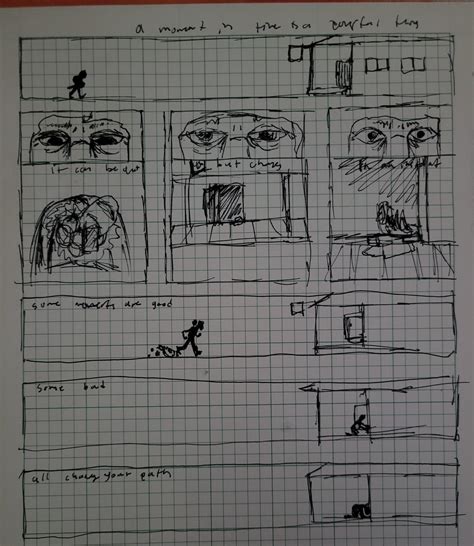 a moment in time is a powerful thing
it can be quiet
but chang
some moments are good
some bad
all chang your path